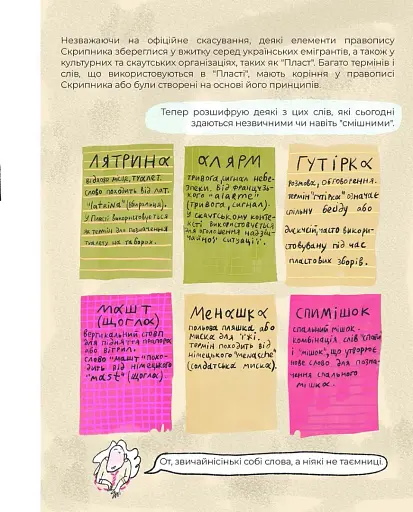 Незважаючи на офіційне скасування, деякі елементи правопису
Скрипника збереглися у вжитку серед українських емігрантів, а також у
культурних та скаутських організаціях, таких як "Пласт". Багато термінів і
слів, що використовуються в "Пласті", мають коріння у правописі
Скрипника або були створені на основі його принципів.
Тепер розшифрую деякі з цих слів, які сьогодні
здаються незвичними чи навіть "смішними".
ЛЯТРИНА
відхоже місце, туалет.
слово походить від лат.
"latrina" (вбиральня).
У Пласті використовується
як термін для позначення
туалету на таборах.
АЛЯРМ
тривога, сигнал небе-
зпеки. від французь-
кого "alarme"
(тривога, сигнал).
У скаутському конте-
ксті використовується
для оголошення надзви-
чайної ситуації.
ГУТІРКА
розмова, обговорення.
термін "гутірка" означає
спільну бесіду або
дискусію, часто викори-
стовувану під час
пластових зборів.
МАШТ
(ЩОГЛА)
вертикальний стовп
для підняття прапора
або вітрил.
слово "машт" похо-
дить від німецького
"mast" (щогла).
МЕНАШКА
польова пляшка або
миска для їжі.
термін походить від
німецького "menasche"
(солдатська миска).
СПИМІШОК
спальний мішок.
комбінація слів "спати"
і "мішок", що утворює
нове слово для позна-
чення спального
мішка.
От, звичайнісінькі собі слова, а ніякі не таємниці.